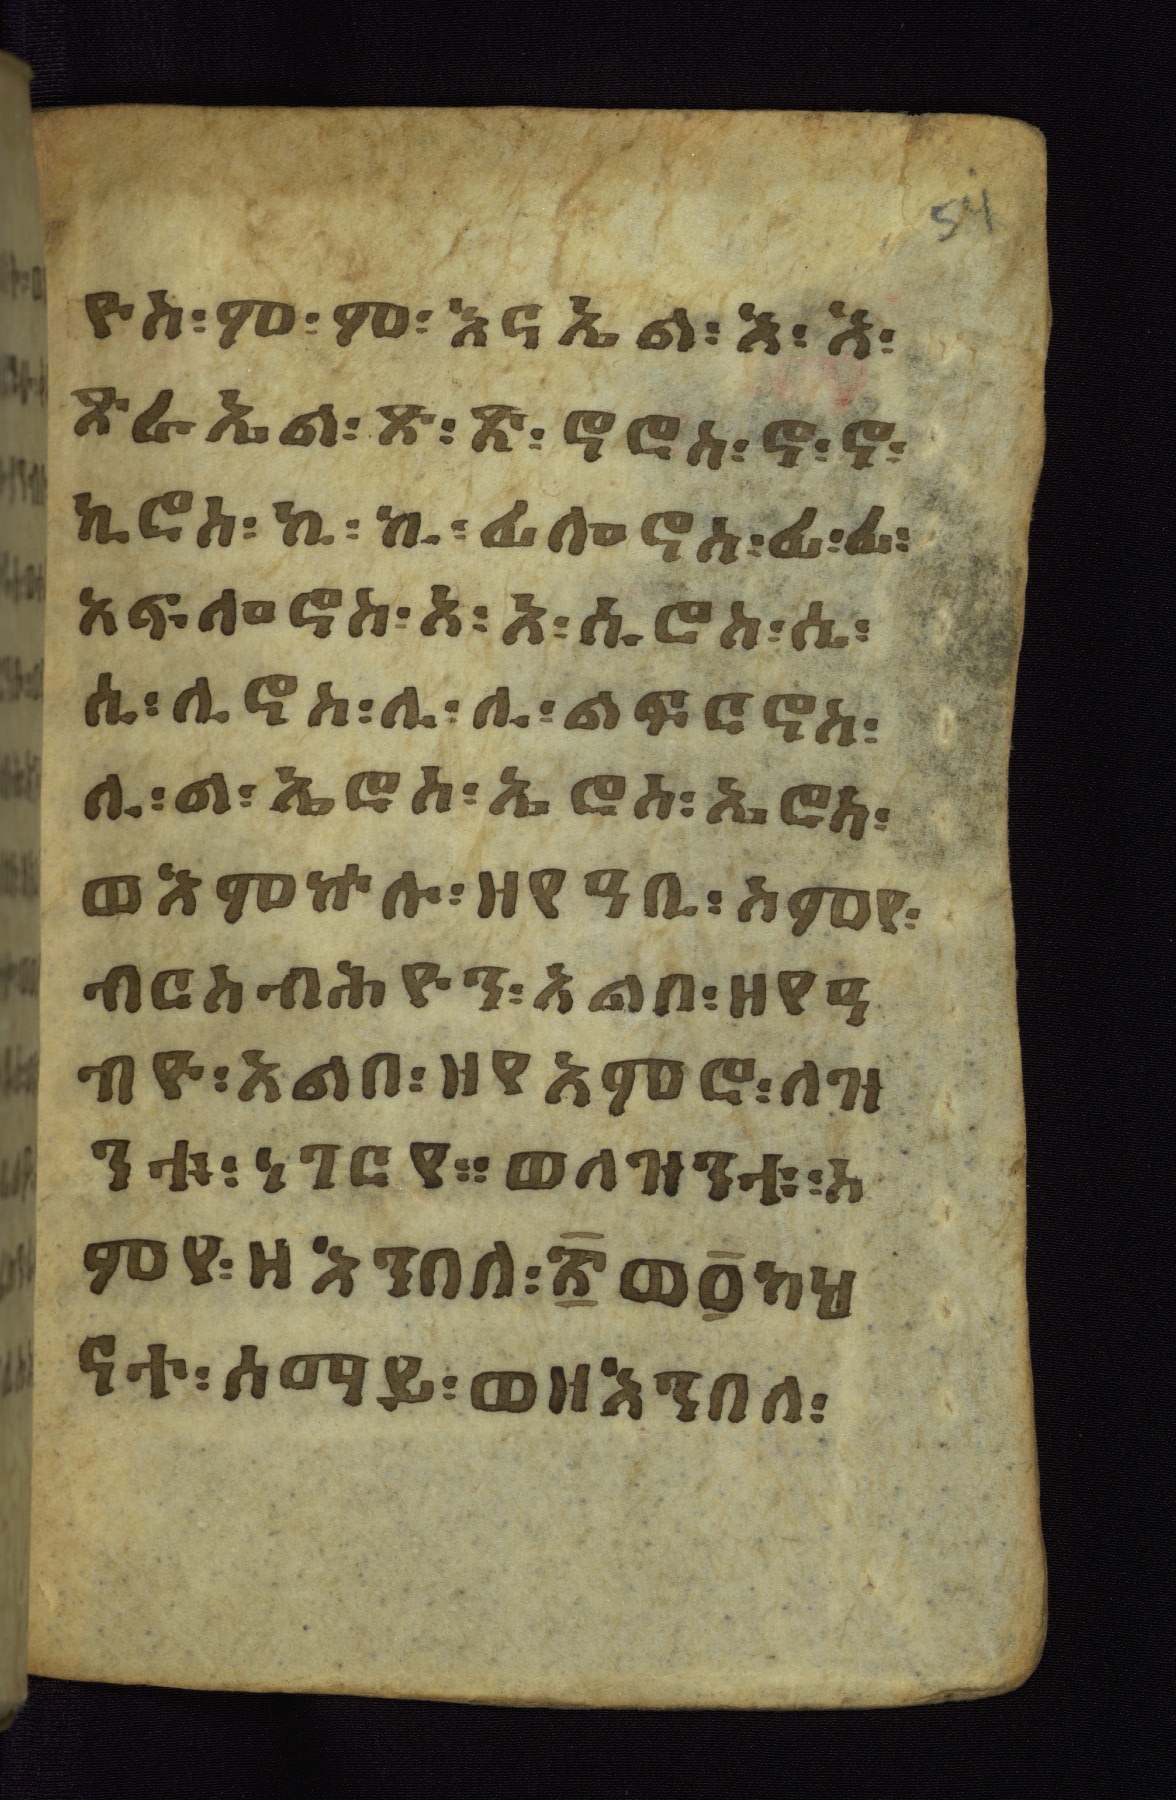 54
ዮስ፡ ም፡ ም፡ እናኤል፡ እ፡ እ፡
ጽራኤል፡ ጽ፡ ጽ፡ ኖሮስ፡ ኖ፡ ኖ፡
ኪሮስ፡ ኪ፡ ኪ፡ ፊሎኖስ፡ ፊ፡ ፊ፡
አፍሎኖስ፡ አ፡ አ፡ ሲሮስ፡ ሲ፡
ሲ፡ ሊኖስ፡ ሊ፡ ሊ፡ ልፍርኖስ፡
ሊ፡ ል፡ ኤሮስ፡ ኤሮስ፡ ኤሮስ፡
ወእምኵሉ፡ ዘየዓቢ፡ አምየ፡
ብርስብሕዮን፡ አልበ፡ ዘየዓ
ብዮ፡ አልበ፡ ዘየአምሮ፡ ለዝ
ንቱ፡ ነገርየ። ወለዝንቱ፡ አ
ምየ፡ ዘእንበለ፡ ፳ወ፬ካህ
ናተ፡ ሰማይ፡ ወዘእንበለ፡